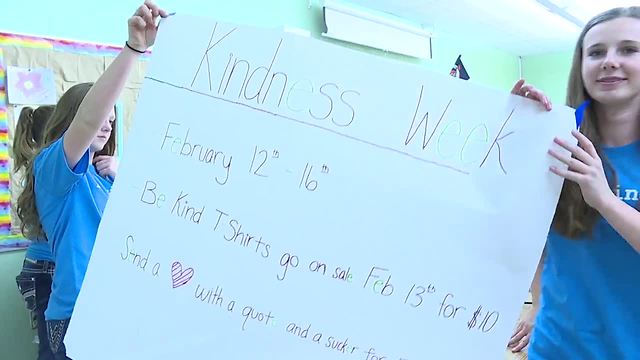 Kindness Week
February 12th - 16th
- Be Kind T Shirts go on sale Feb 13th for $10
Send a ♥ with a quote and a sucker for